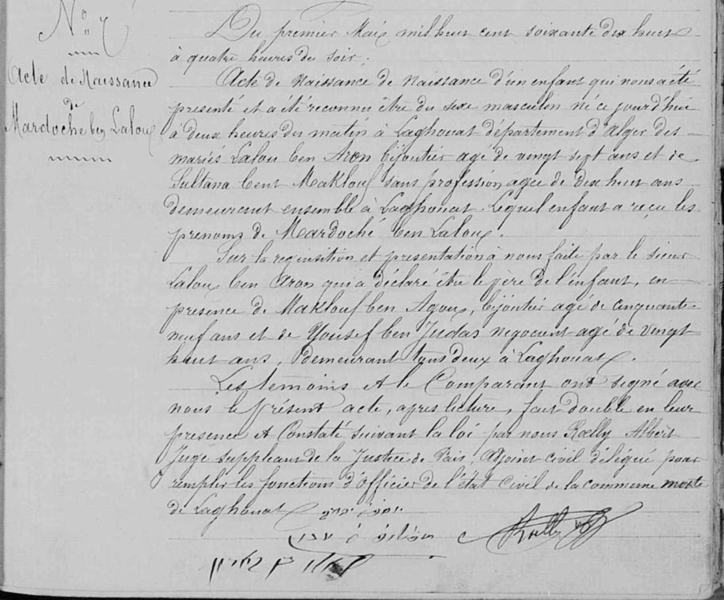 N° 7
Acte de Naissance
de
Mardoche ben Lalou
Du premier Mai mil huit cent soixante dix huit
à quatre heures du soir.
Acte de Naissance de Naissance d'un enfant qui nous a été
presenté et a été reconnu être du sexe masculin né ce jourd'hui
à deux heures du matin à Laghouat département d'Alger des
mariés Lalou ben Aron bijoutier agé de vingt sept ans et de
Sultana bent Maklouf sans profession agee de dix huit ans
demeurant ensemble à Laghouat. Lequel enfant a reçu les
prenoms de Mardoché ben Lalou.
Sur la requisition et presentation à nous faite par le sieur
Lalou ben Aron qui a déclaré être le père de l'enfant, en
presence de Maklouf ben Agou, bijoutier agé de cinquante
neuf ans et de Yousef ben Judas negociant agé de vingt
huit ans, demeurant tous deux à Laghouat.
Les temoins et le Comparant ont signé avec
nous le présent acte, apres lecture, fait double en leur
presence et Constaté suivant la loi par nous Rolly Albert
Juge suppleant de la Justice de Paix, Adjoint civil délégué pour
remplir les fonctions d'Officier de l'état Civil de la commune mixte
de Laghouat
Rolly